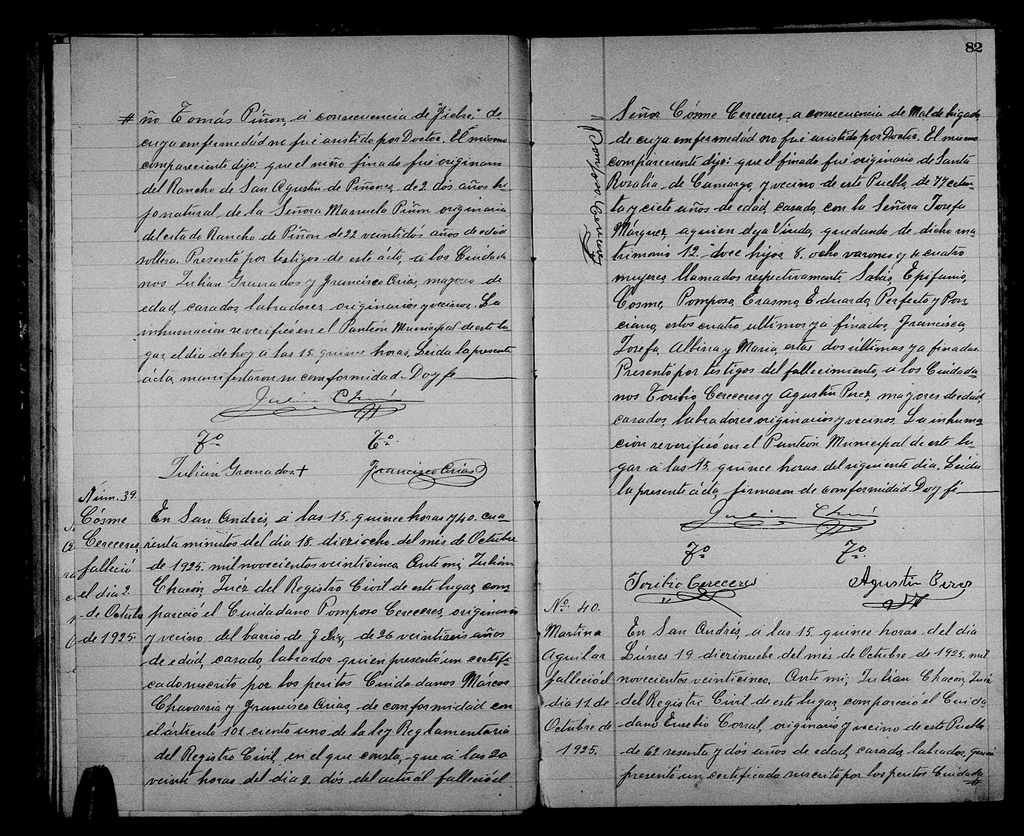 ño Tomás Piñon, a consecuencia de "Fiebre" de
cuya emfermedád no fué asistido por Doctor. El mismo
compareciente dijo: que el niño finado fué originario
del Rancho de San Agustin de Piñones, de 2 dos años hi
jo natural de la Señora Manuela Piñon originaria
del citado Rancho de Piñon de 22 veintidos años de edád
soltera. Presentó por testigos de este ácto, a los Ciudada
nos Julian Granados y Francisco Arias, mayores de
edád, casados labradores originarios y vecinos. La
inhumación se verificó en el Panteón Municipal de este lu
gar, el dia de hoy a las 15 quince horas. Leida la presente
ácta, manifestaron su comformidad. Doy fé
T.º T.º
Julián Granados Francisco Arias
Núm. 39.
Cósme
Cereceres,
falleció
el dia 2
de Octubre
de 1925.
En San Andrés, á las 15 quince horas y 40 cua-
renta minutos del dia 18 dieziocho del més de Octubre
de 1925. mil novecientos veinticinco. Ante mi, Julián
Chacón, Juéz del Registro Civil de este lugar, com-
pareció el Ciudadano Pomposo Cereceres, originario
y vecino del barrio de de 26 veintiseis años
de edád, casado, labrador quien presentó un certifi-
cado suscrito por los peritos Ciudadanos Márcos
Chavarria y Francisco Arias, de comformidad con
el árticulo 101 ciento uno de la ley Reglamentaria
del Registro Civil, en el que consta, que á las 20
veinte horas del dia 2 dós del actuál falleció el
82
Pomposo Cereceres
Señor Cósme Cereceres, a consecuencia de Mal de higado
de cuya emfermedád no fué asistido por Doctor. El mismo
compareciente dijo: que el finado fué originario de Santa
Rosalia de Camargo, y vecino de este Pueblo, de 77 seten-
ta y ciete años de edád, casado, con la Señora Josefa
Márquez, a quien deja Viuda, quedando de dicho ma-
trimonio 12 doce hijos 8 ocho varones y 4 cuatro
mujeres, llamados respectivamente Epifanio,
Cosme, Pomposo, Erasmo, Eduardo, Perfecto y Pon-
ciano, estos cuatro ultimos ya finados, Francisca,
Josefa, Albina y Maria, estas dos últimas ya finadas.
Presentó por testigos del fallecimiento, a los Ciudada-
nos Toribio Cereceres y Agustin Perez, mayores de edád,
casados, labradores originarios y vecinos. La inhuma-
ción se verificó en el Panteón Municipal de este lu-
gar a las 15 quince horas del siguiente dia. Leida
la presente ácta, firmaron de comformidad. Doy fé
T.º T.º
Toribio Cereceres Agustin Perez
Nº. 40.
Martina
Aguilar
falleció el
dia 11 de
Octubre de
1925.
En San Andrés, á las 15 quince horas del dia
Lúnes 19 diezinuebe del més de Octubre de 1925. mil
novecientos veinticinco. Ante mi, Julian Chacon, Juéz
del Registro Civil de este lugar, compareció el Ciuda-
dano Eusebio Corral, originario y vecino de este Pueblo
de 62 sesenta y dos años de edád, casado, labrador, quien
presentó un certificado suscrito por los peritos Ciudada